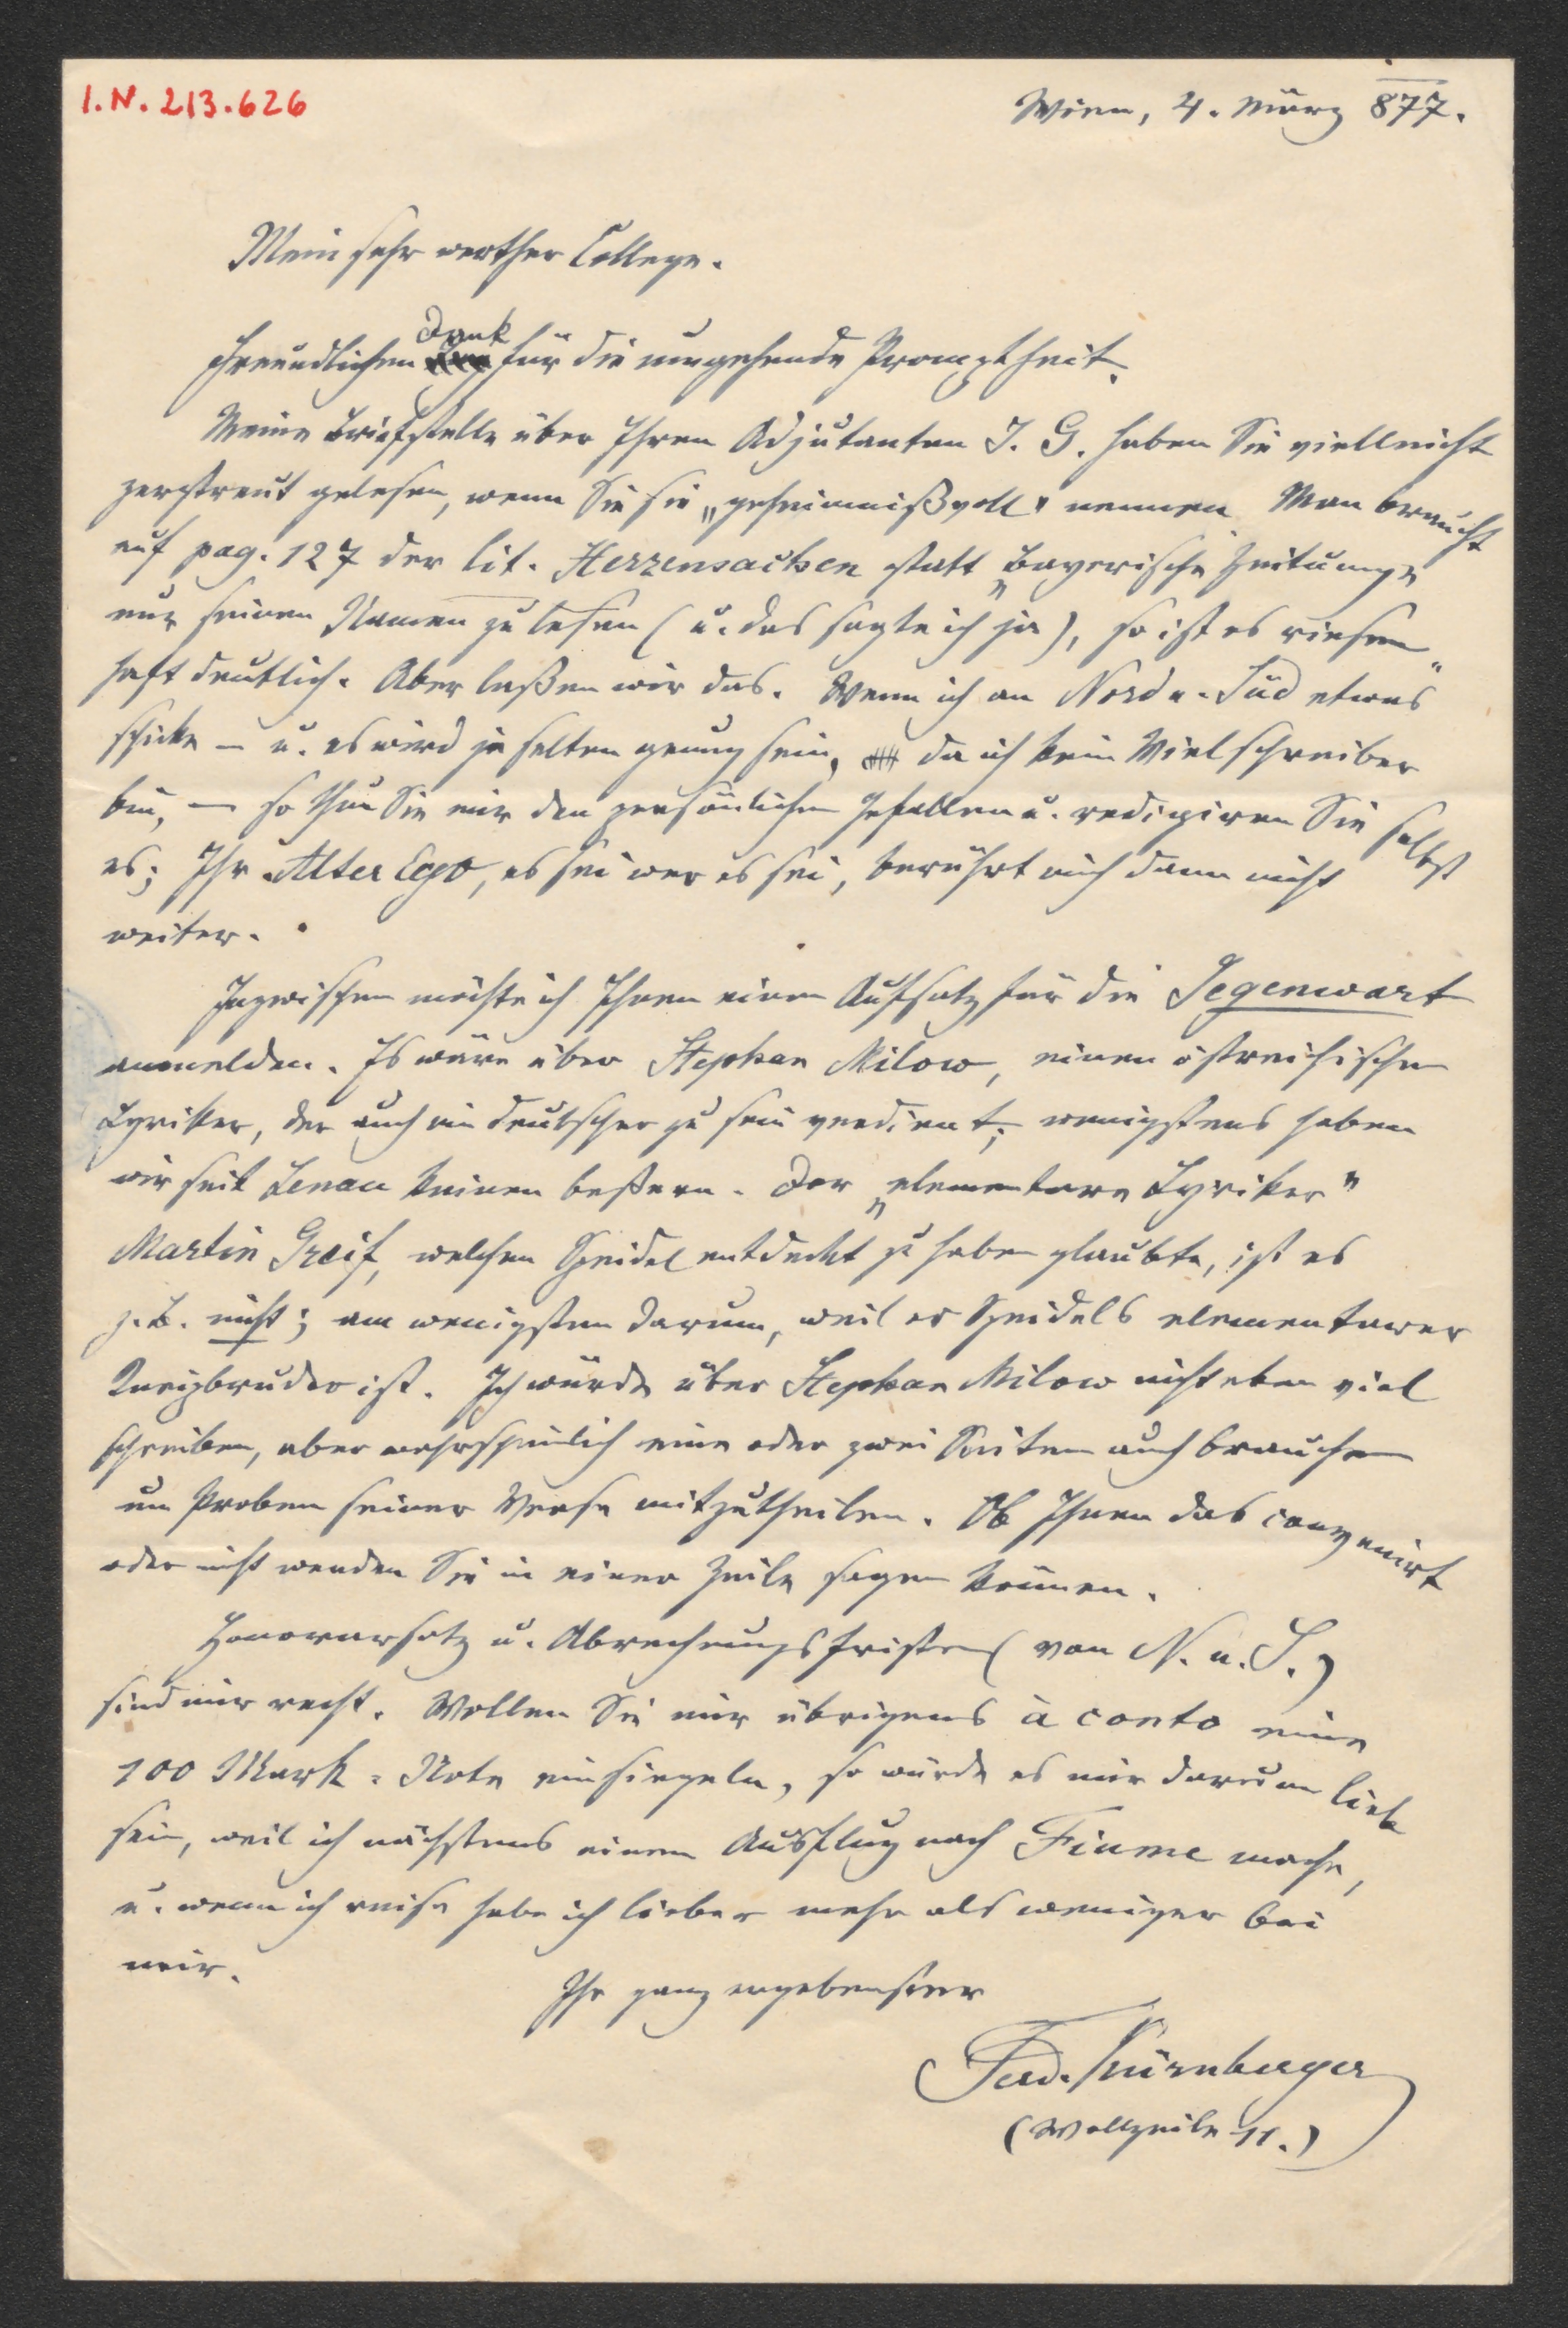 I.N. 213.626
Wien, 4. März 877.
Mein sehr werther College.
Dank
Freundlichen für die umgehende Promptheit.
Meine Briefstelle über Ihren Adjutanten J. G. haben Sie vielleicht
zerstreut gelesen, wenn Sie sie „geheimnißvoll" nennen. Man braucht
auf pag. 127 der lit. Herzenssachen statt „bayerische Zeitung"
nur seinen Namen zu lesen (u. das sagte ich ja), so ist es riesen
haft deutlich. Aber laßen wir das. Wenn ich an Nord u. Süd etwas
schicke – u. es wird ja selten genug sein, da ich kein Vielschreiber
bin, – so thun Sie mir den persönlichen Gefallen u. redigiren Sie selbst
es; Ihr Alter Ego, es sei wer es sei, berührt mich dann nicht
weiter.
Inzwischen möchte ich Ihnen einen Aufsatz für die Gegenwart
anmelden. Es wäre über Stephan Milow, einen östreichischen
Lyriker, der auch ein deutscher zu sein verdient; wenigstens haben
wir seit Lenau keinen beßern. Der „elementare Lyriker"
Martin Greif, welchen Speidel entdeckt zu haben glaubte, ist es
z. B. nicht; am wenigsten darum, weil er Speidels elementarer
Kneipbruder ist. Ich würde über Stephan Milow nicht eben viel
schreiben, aber wahrscheinlich eine oder zwei Seiten auch brauchen
um Proben seiner Verse mitzutheilen. Ob Ihnen das convenirt
oder nicht werden Sie in einer Zeile sagen können.
Honorarsatz u. Abrechnungsfristen (von N. u. S.)
sind mir recht. Wollen Sie mir übrigens à conto eine
100 Mark = Note einsiegeln, so würde es mir darum lieb
sein, weil ich nächstens einen Ausflug nach Fiume mache,
u. wenn ich reise habe ich lieber mehr als weniger bei
mir.
Ihr ganz ergebenster
Ferd. Kürnberger
(Wollzeile 11.)